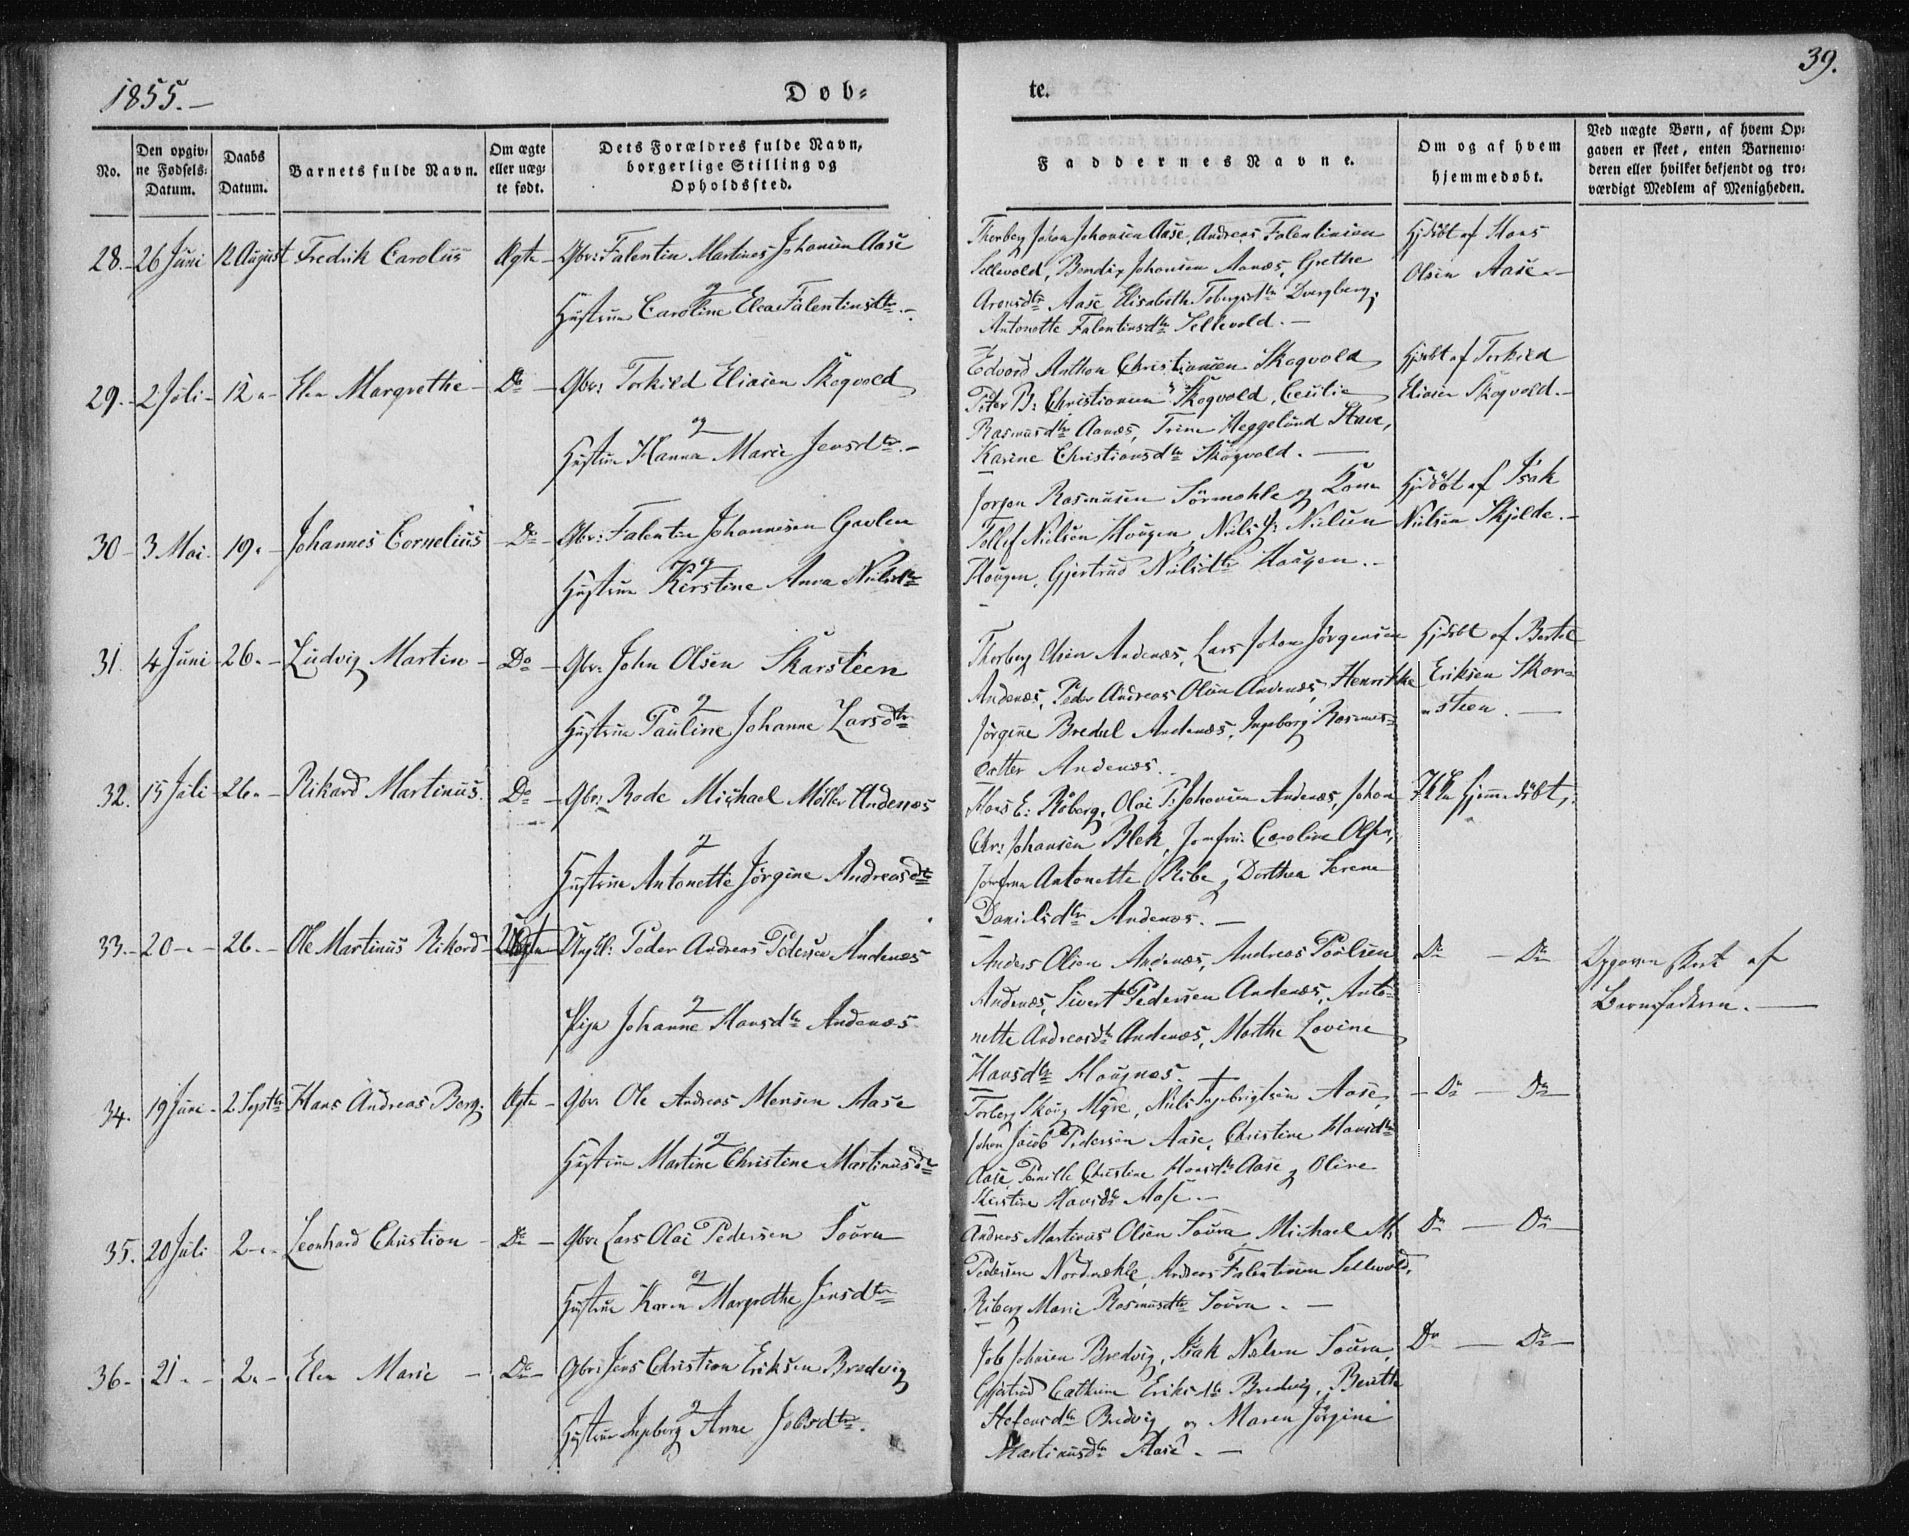 1855.
39.
Døb-
te.
No.
Den opgiv-
ne Fødsels-
Datum.
Daabs
Datum.
Barnets fulde Navn.
Om ægte
eller uæg-
te født.
Dets Forældres fulde Navn,
borgerlige Stilling og
Opholdssted.
Faddernes Navne.
Om og af hvem
hjemmedøbt.
Ved uægte Børn, af hvem Op-
gaven er skeet, enten Barnemo-
deren eller hvilket bekjendt og tro-
værdigt Medlem af Menigheden.
28. 26 Juni 12 August Fredrik Carolus Ægte Gbr: Falentin Martines Johansen Aase
og
Hustrue Caroline Elea Falentinsdtr.
Thorberg Johan Johansen Aase, Andreas Falentinsen
Sellevold, Bendix Johansen Aanæs, Grethe
Arensdtr Aase, Elisabeth Tobergsdtr Dverberg,
Antonette Falentinsdtr Sellevold.
Hjdøbt af Hans
Olsen Aase.
29. 2 Juli 12 Elen Margrethe Do Gbr: Torkild Eliasen Skogvold
og
Hustrue Hanna Marie Jensdtr.
Edvard Anthon Christiansen Skogvold
Peter B: Christiansen Skogvold, Cecilie
Rasmusdtr Aanæs, Trine Heggelund Stave,
Karine Christiansdtr Skogvold.
Hjdøbt af Torkild
Eliasen Skogvold.
30 3 Mai 19 Johannes Cornelius Do Gbr: Falentin Johannesen Gavlen
og
Hustrue Kirstine Anna Nilsdtr
Jorgen Rasmusen Sörmæhle og Kone
Tollef Nielsen Hougen, Niels Nielsen
Hougen, Gjertrud Nielsdtr Haugen.
Hjdöbt af Isak
Nielsen Skjolde.
31. 4 Juni 26. Ludvig Martin Do Gbr. John Olsen Skarsteen
og
Hustrue Pauline Johanne Larsdtr
Thorberg Olsen Andenæs, Lars Johan Jørgensen
Andenæs, Peder Andreas Olsen Andenæs, Henrikke
Jørgine Bredul Andenæs, Ingeborg Rasmus-
datter Andenæs.
Hjdøbt af Bertel
Eriksen Skar-
steen.
32. 15 Juli 26. Rikard Martinus. Do Gbr: Rode Michael Møller Andenæs
og
Hustrue Antonette Jørgine Andreasdtr
Hans E: Röberg, Olai P: Johansen Andenæs, Johan
Chr: Johansen Blek, Jomfru Caroline Olsen,
Jomfrue Antonette Ribe, Dorthea Serene
Danielsdtr Andenæs.
Ikke hjemmedøbt.
33. 20 26. Ole Martinus Rikard Uægte Ungkl: Peder Andreas Pedersen Andenæs
og
Pige Johanne Hansdtr Andenæs.
Anders Olsen Andenæs, Andreas Poulsen
Andenæs, Sivert Pedersen Andenæs, Anto-
nette Andreasdtr Andenæs, Marthe Lovine
Hansdtr Hougnæs.
Do Do
Opgaven skeet af
Barnefaderen.
34. 19 Juni 2. Septbr Hans Andreas Berg. Ægte Gbr. Ole Andreas Mensen Aase
og
Hustrue Martine Christine Martinusdtr
Torberg Skoug Myre, Niels Ingebrigtsen Aase,
Johan Jacob Pedersen Aase, Christine Hansdtr
Aase, Pernille Christine Hansdtr Aase, Olive
Kerstine Hansdtr Aase.
Do Do
35. 20 Juli 2. Leonhard Christian Do Gbr. Lars Olai Pedersen Soura
og
Hustrue Karen Margrethe Jensdtr
Andreas Martinus Olsen Soura, Michael M:
Pedersen Nordmæhle, Andreas Falentinsen Sellevold,
Riberg Marie Rasmusdtr Soura.
Do Do
36. 21 2. Elen Marie Do Gbr: Jens Christian Eriksen Bredvig
og
Hustrue Ingeborg Anne Jobsdtr.
Job Johnsen Bredvig, Isak Nielsen Soura,
Gjertrud Cathrine Eriksdtr Bredvig, Berith
Stefensdtr Bredvig og Maren Jørgine
Martinusdtr Aase.
Do Do